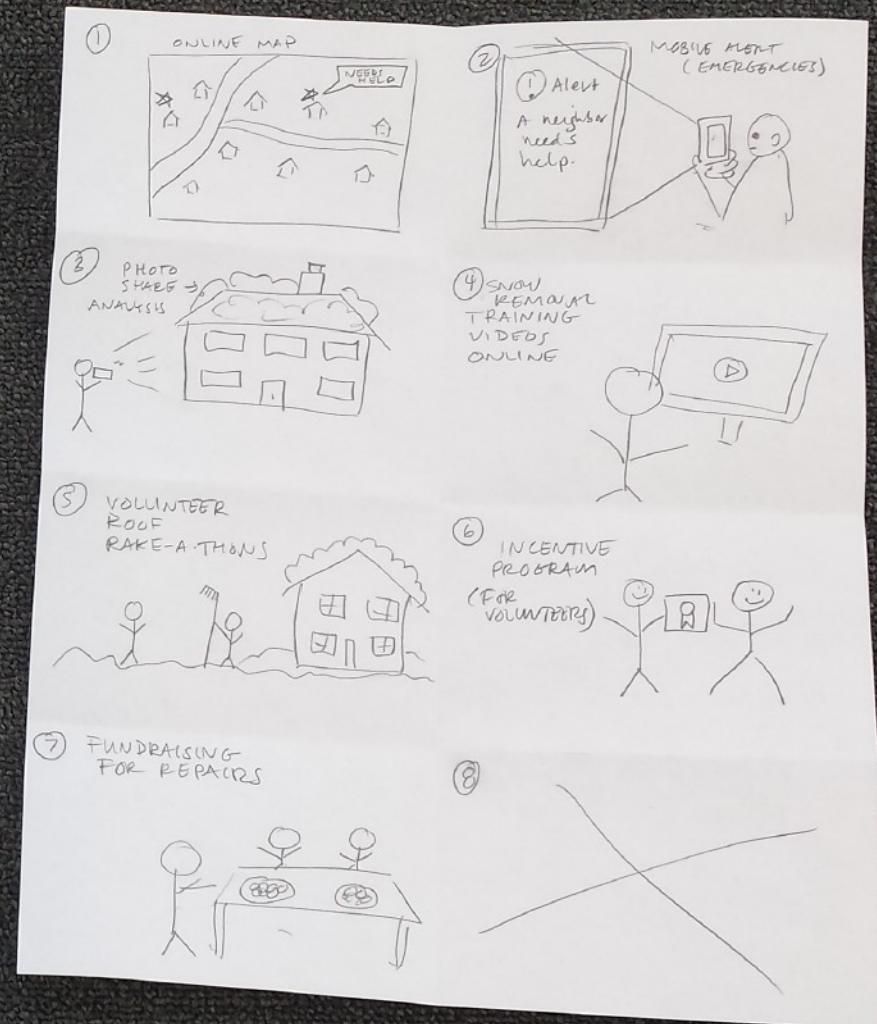 1
ONLINE MAP
NEEDS
HELP
2
MOBILE ALERT
(EMERGENCIES)
! Alert
A neighbor
needs
help.
3
PHOTO
SHARE →
ANALYSIS
4
SNOW
REMOVAL
TRAINING
VIDEOS
ONLINE
5
VOLUNTEER
ROOF
RAKE-A-THONS
6
INCENTIVE
PROGRAM
(FOR
VOLUNTEERS)
7
FUNDRAISING
FOR REPAIRS
8